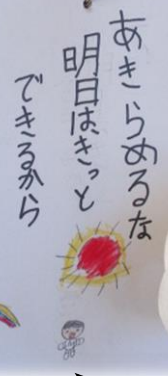 あきらめるな
明日はきっと
できるから